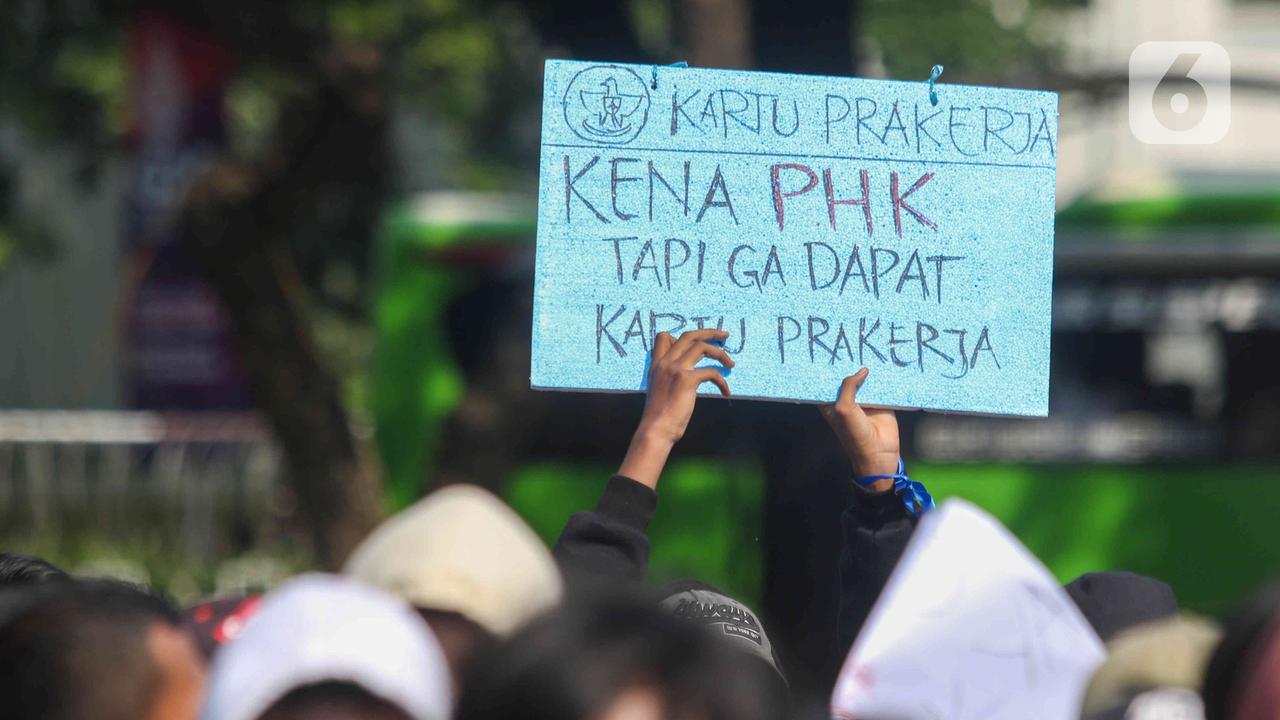 KARTU PRAKERJA
KENA PHK
TAPI GA DAPAT
KARTU PRAKERJA
6